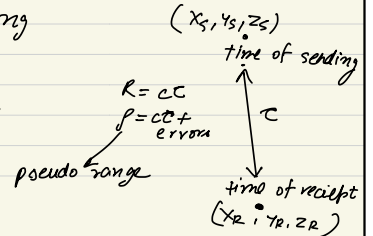 ng
(xs, ys, zs)
time of sending
R = cτ
τ
ρ = cτ +
errors
pseudo range
time of reciept
(XR, YR, ZR)